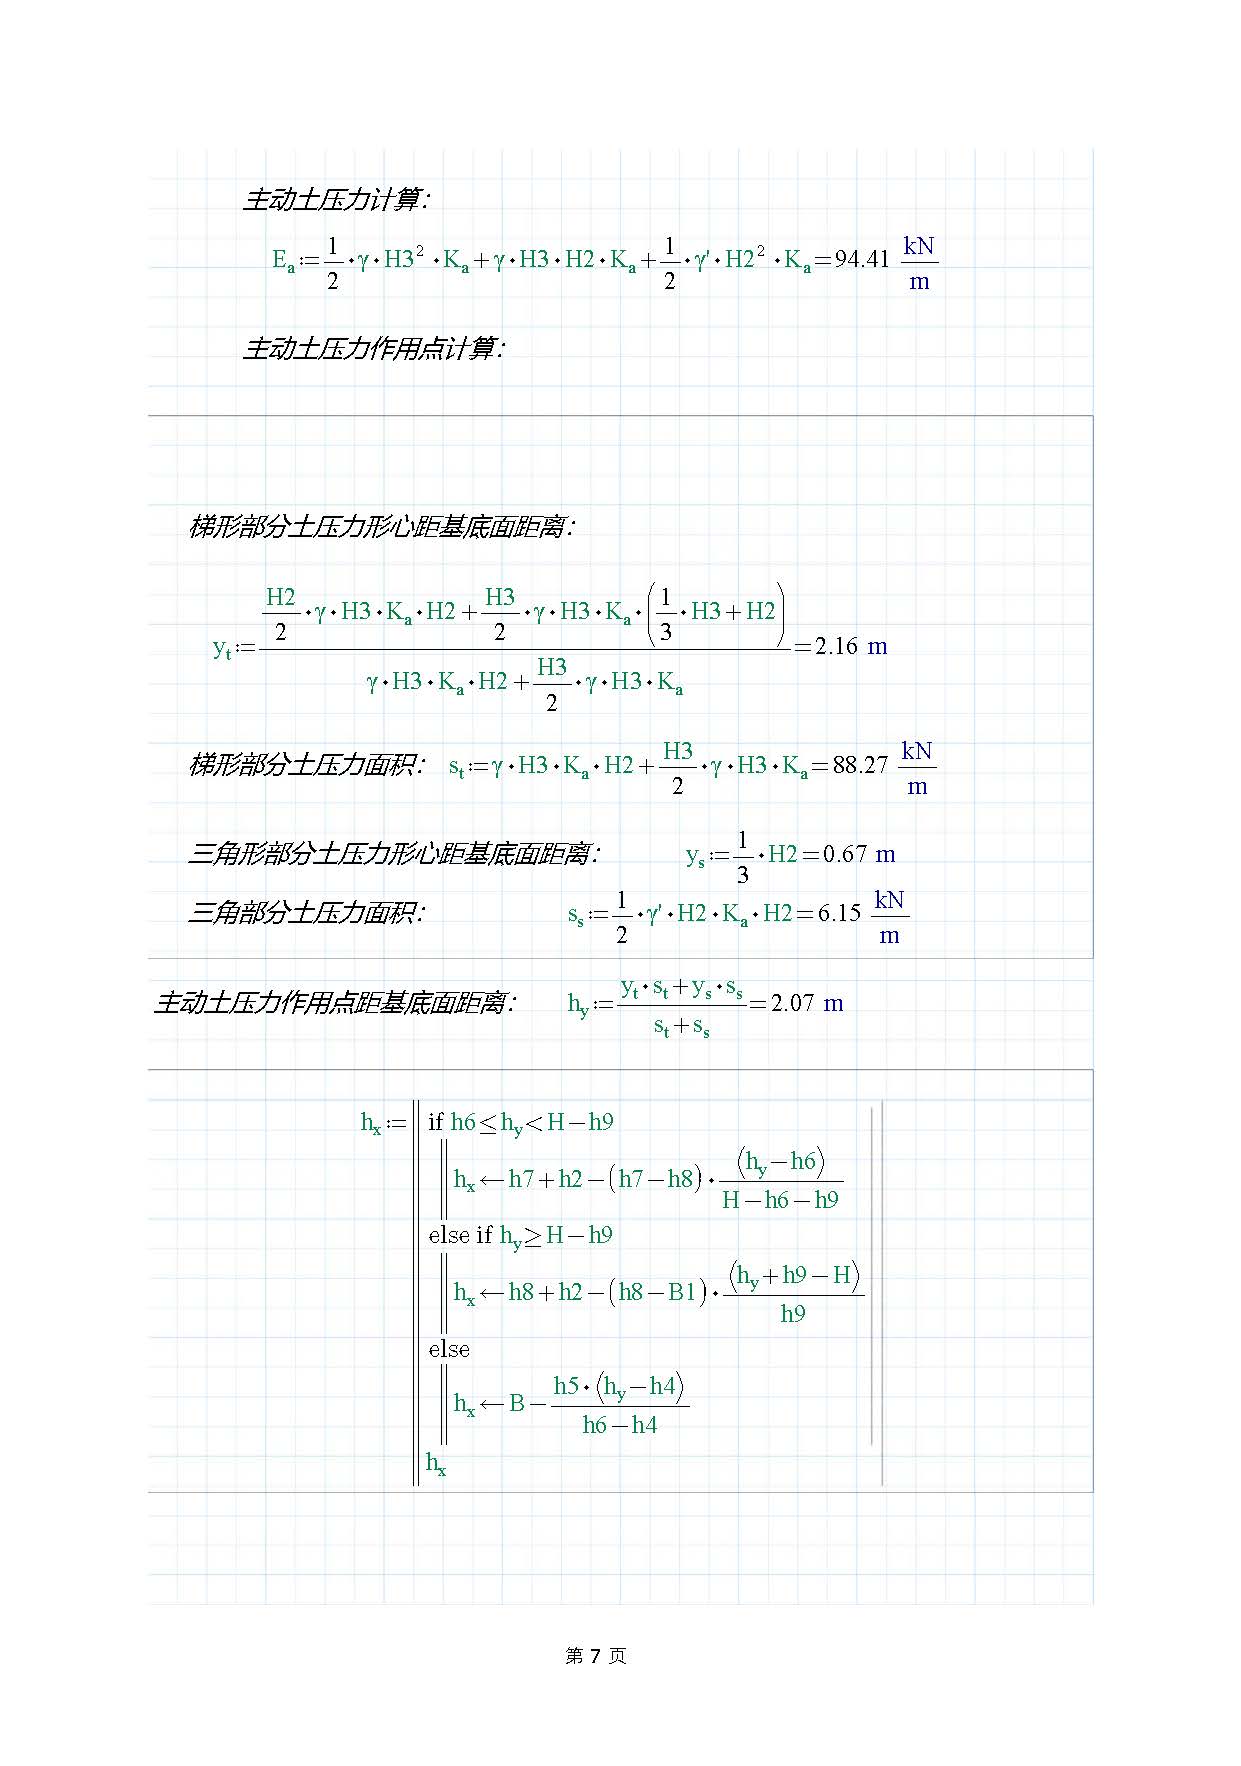 主动土压力计算：
E_a := 1/2·γ·H3²·K_a + γ·H3·H2·K_a + 1/2·γ'·H2²·K_a = 94.41 kN/m
主动土压力作用点计算：
梯形部分土压力形心距基底面距离：
y_t := (H2/2·γ·H3·K_a·H2 + H3/2·γ·H3·K_a·(1/3·H3+H2)) / (γ·H3·K_a·H2 + H3/2·γ·H3·K_a) = 2.16 m
梯形部分土压力面积： s_t := γ·H3·K_a·H2 + H3/2·γ·H3·K_a = 88.27 kN/m
三角形部分土压力形心距基底面距离： y_s := 1/3·H2 = 0.67 m
三角部分土压力面积： s_s := 1/2·γ'·H2·K_a·H2 = 6.15 kN/m
主动土压力作用点距基底面距离： h_y := (y_t·s_t + y_s·s_s) / (s_t + s_s) = 2.07 m
h_x := if h6 ≤ h_y < H − h9
h_x ← h7 + h2 − (h7 − h8)·(h_y − h6)/(H − h6 − h9)
else if h_y ≥ H − h9
h_x ← h8 + h2 − (h8 − B1)·(h_y + h9 − H)/h9
else
h_x ← B − h5·(h_y − h4)/(h6 − h4)
h_x
第 7 页